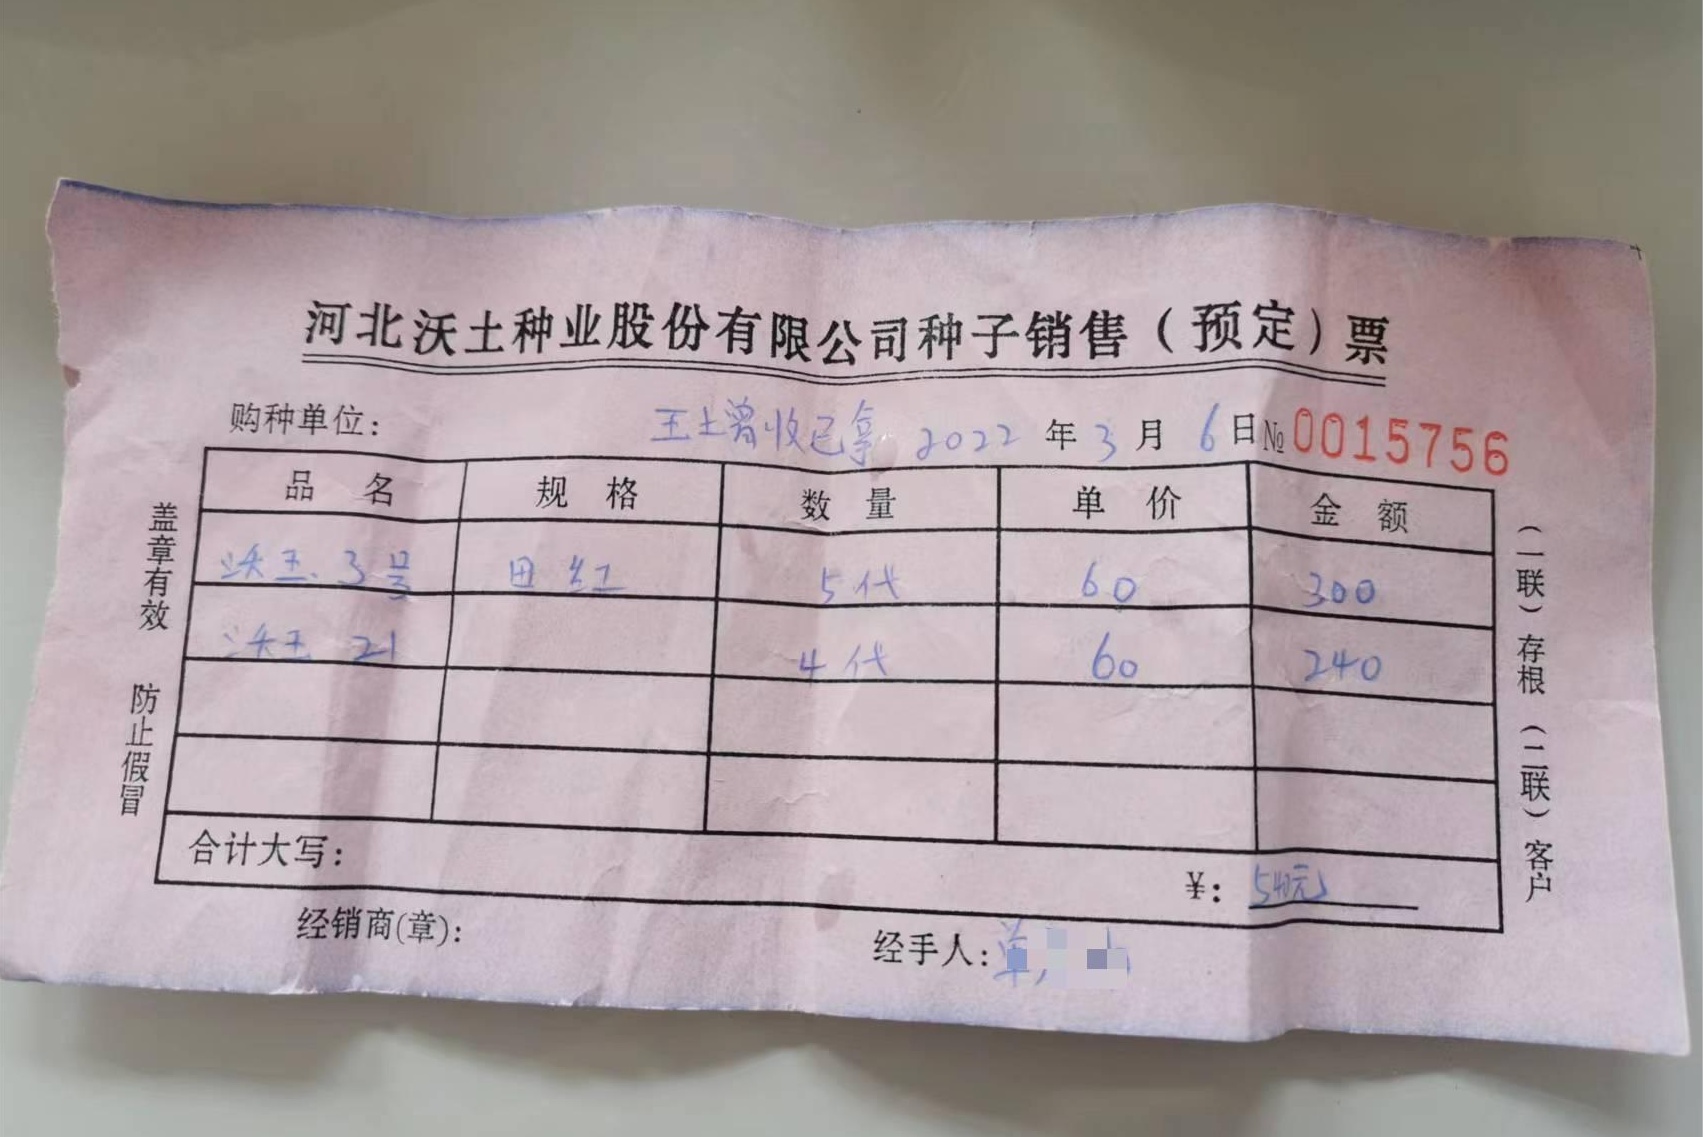 河北沃土种业股份有限公司种子销售(预定)票
购种单位: 王上 收已拿 2022 年 3 月 6 日 № 0015756
品名 规格 数量 单价 金额
沃玉 3号 田红 5代 60 300
沃玉 21 4代 60 240
合计大写: ¥: 540元
经销商(章): 经手人: 单
盖章有效 防止假冒
(一联)存根(二联)客户